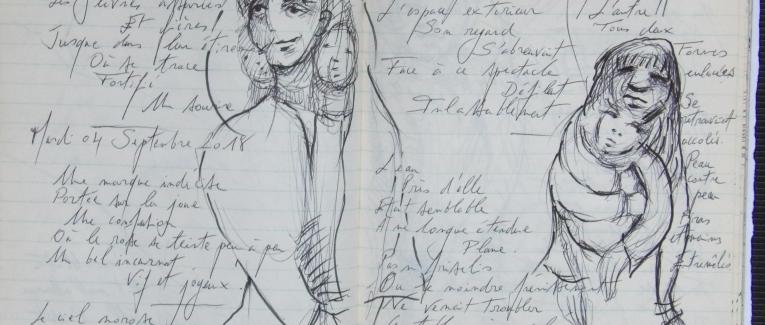 Les lèvres
Et
Jusque dans leur
Où se trace
Fortifi
Un sourire
Mardi 04 Septembre 2018
Une marque indécise
Portée sur la joue
Une confusion
Où le rose se teinte peu à peu
Un bel incarnat
Vif et joyeux
Le ciel morose
L'espace extérieur
Son regard
S'abreuvait
Face à ce spectacle
Défilant
Inlassablement.
L'eau
Près d'elle
Était semblable
A une longue étendue
Plane.
Pas un
Où le moindre frémissement
Ne venait troubler
L'autre
Tous deux
Formes
enlacées
Se
retrouvait
accolés.
Peau
contre
peau
Bras
et mains
Entremêlés